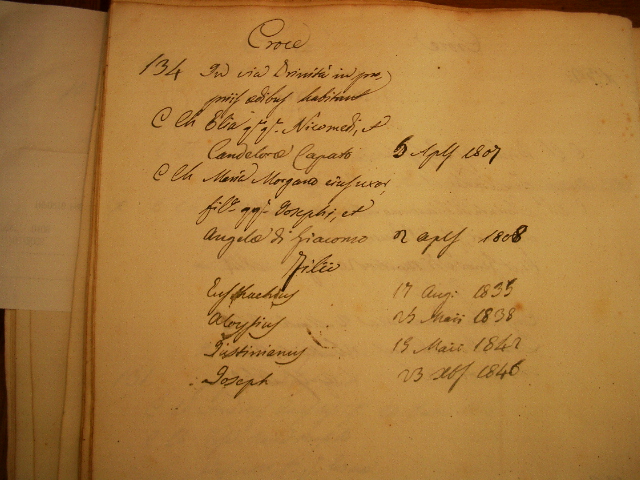 Croce
134 In via Trinità in pro-
priis ædibus habitant
C Ch Elia qm qm Nicomedi, et
Candeloræ Capato 6 Aplis 1807
C Ch Maria Morgano eius uxor,
fila qqm Josephi, et
Angelæ di Giacomo 2 aplis 1808
Filii
Eustachius 17 Aug: 1835
Aloysius 25 Maii 1838
Justinianus 15 Maii 1842
Joseph 23 Xbs 1846